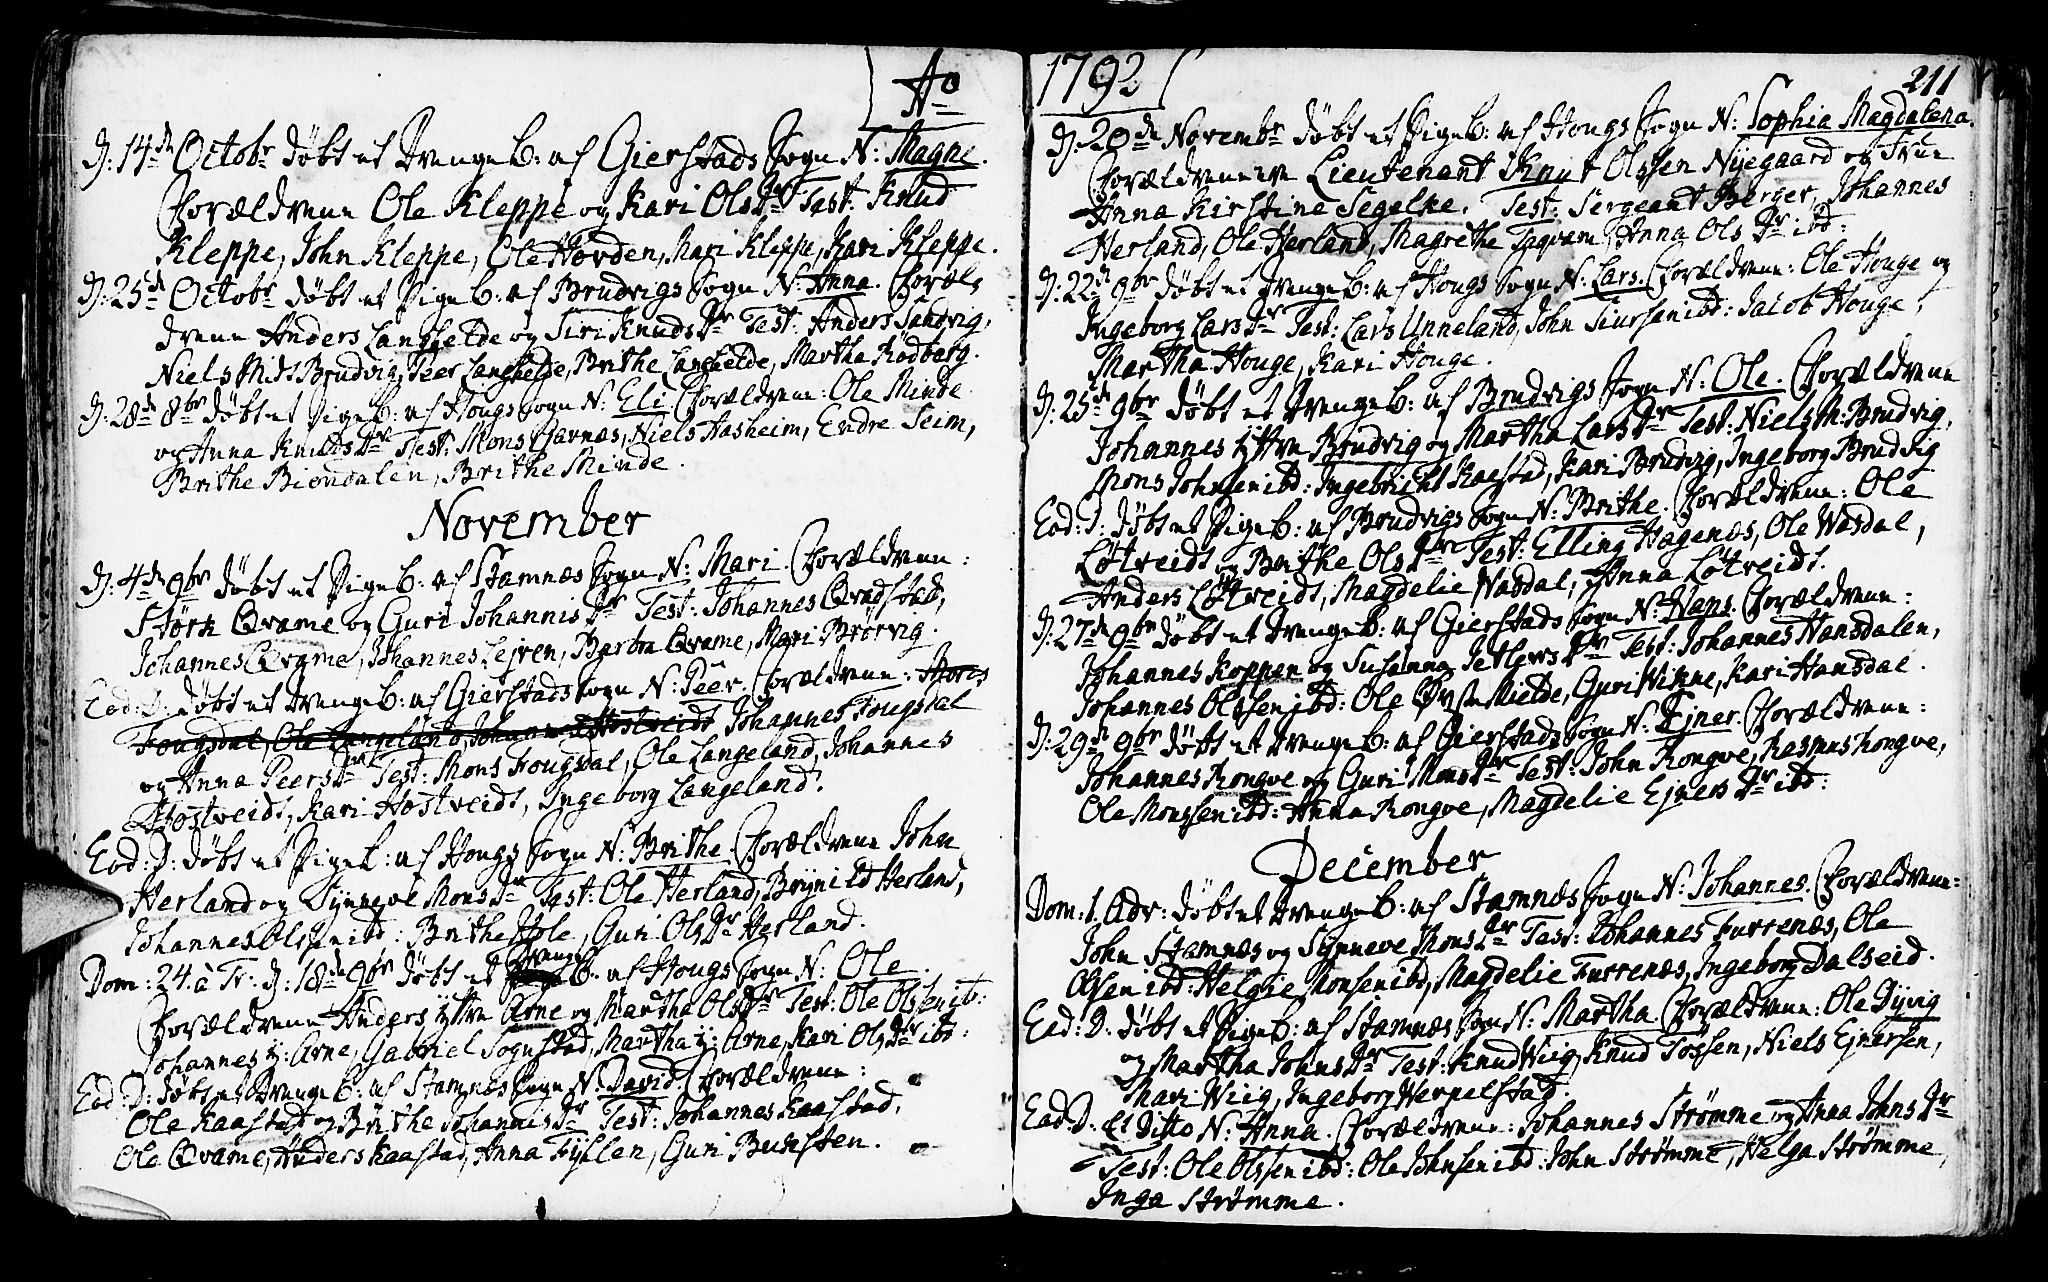 Ao
D: 14de Octobr døbt et Drengeb: af Gierstads Sogn N: Magne.
Forældrene Ole Kleppe og Kari Ols Dr Test: Knud
Kleppe, John Kleppe, Ole Hovden, Mari Kleppe, Kari Kleppe.
D: 25de Octobr døbt et Pigeb: af Brudvigs Sogn N: Anna. Foræl-
drene Anders Langhelde og Siri Knuds Dr Test: Anders Sandvig,
Niels Nils Brudvig, Peer Langhelde, Brithe Langhelde, Martha Rødberg.
D: 28de 8br døbt et Pigeb: af Hougs Sogn N: Eli Forældrene: Ole Minde
og Anna Knuds Dr Test: Mons Garnæs, Niels Aasheim, Endre Seim,
Brithe Biondalen, Brithe Minde.
November
D: 4de 9br døbt et Pigeb: af Stamnæs Sogn N: Mari Forældrene:
Størk Qvame og Guri Johannis Dr Test: Johannes Qvadstad,
Johannes Qvame, Johannes Lejren, Barbra Qvame, Mari Brørvig.
Ead: D: døbt et Drengeb: af Gierstads Sogn N: Peer Forældrene:
Fougsdal, Ole Langeland, Johannes Hostveidt Johannes Fougsdal
og Anna Peers Dr Test: Mons Fougsdal, Ole Langeland, Johannes
Hostveidt, Kari Hostveidt, Ingeborg Langeland.
Ead: D: døbt et Pigeb: af Hougs Sogn N: Brithe Forældrene John
Herland og Synneve Mons Dr Test: Ole Herland, Brynild Herland,
Johannes Olsen ibd: Brithe Hole, Guri Ols Dr Herland.
Dom: 24. à Tr: D: 18de 9br døbt et Drenge B: af Hougs Sogn N: Ole.
Forældrene Anders ÿttre Arne og Martha Ols Dr Test: Ole Olssen ib:
Johannes ÿ: Arne, Gabriel Sognstad, Martha ÿ: Arne, Kari Ols Dr ibd:
Ead: D: døbt et Drengeb: af Stamnæs Sogn N: David Forældrene:
Ole Kaastad og Brithe Johannis Dr Test: Johannes Kaastad,
Ole Qvame, Anders Kaastad, Anna Fyllen, Guri Buhsten.
1792
211
D: 20de Novembr døbt et Pigeb: af Hougs Sogn N: Sophia Magdalena.
Forældrene ere Lieutenant Knut Olssen Nyegaard og Frue
Anna Kirstine Segelke. Test: Sergeant Berger, Johannes
Herland, Ole Herland, Magrethe Tagvam, Anna Ols Dr ibd:
D: 22de 9br døbt et Drengeb: af Hougs Sogn N: Lars. Forældrene: Ole Houge og
Ingeborg Lars Dr Test: Lars Unneland, John Siursen ibd: Jacob Houge,
Martha Houge, Kari Houge.
D: 25de 9br døbt et Drengeb: af Brudvigs Sogn N: Ole. Forældrene
Johannes ÿttre Brudvig og Martha Lars Dr Test: Niels M: Brudvig,
Mons Johnsen ibd: Ingebricht Kaastad, Kari Brudvig, Ingeborg Brudvig
Ead: D: døbt et Pigeb: af Brudvigs Sogn N: Brithe. Forældrene: Ole
Løtveidt og Brithe Ols Dr Test: Elling Hagenæs, Ole Wasdal,
Anders Løtveidt, Magdelie Wasdal, Anna Løtveidt.
D: 27de 9br døbt et Drengeb: af Gierstads Sogn N: Hans. Forældrene:
Johannes Koppen og Susanna Jetlevs Dr Test: Johannes Hansdalen,
Johannes Olssen ibd: Ole Mielde, Guri Wikne, Kari Hansdal.
D: 29de 9br døbt et Drengeb: af Gierstads Sogn N: Ejner. Forældrene:
Johannes Rongve og Guri Mons Dr Test: John Rongve, Rasmus Rongve,
Ole Monssen ibd: Anna Rongve, Magdelie Ejners Dr ibd:
December
Dom: 1. Adv: døbt et Drengeb: af Stamnæs Sogn N: Johannes. Forældrene:
John Stamnæs og Synneve Mons Dr Test: Johannes Furrenæs, Ole
Olsen ibd: Helgie Monsen ibd, Magdelie Furrenæs, Ingeborg Dalseid.
Ead: D: døbt et Pigeb: af Stamnæs Sogn N: Martha. Forældrene: Ole Dyvig
og Martha Johns Dr Test: Knud Wiig, Knud Tøssen, Niels Ejnersen,
Mari Wiig, Ingeborg Werpelstad.
Ead: D: et Ditto N: Anna. Forældrene: Johannes Strømme og Anna Johns Dr
Test: Ole Olssen ibd: Ole Johnsen ibd: John Strømme, Helga Strømme,
Inga Strømme.